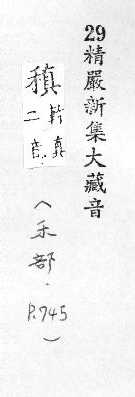 29精嚴新集大藏音
稹
軫真
二音
（禾部．
P.745
）